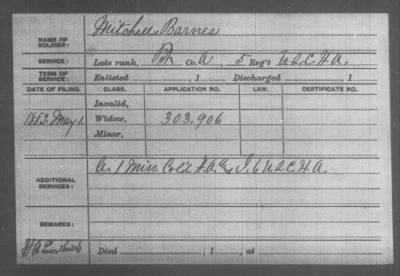 NAME OF SOLDIER: Mitchell Barnes
SERVICE: Late rank, Co. A, 5 Reg't U.S.C.H.A.
TERM OF SERVICE: Enlisted , 1 Discharged , 1
DATE OF FILING. CLASS. APPLICATION NO. LAW. CERTIFICATE NO.
Invalid,
1883 May 1. Widow, 303.906
Minor,
ADDITIONAL SERVICES: Co. I, 6 U.S.C.H.A.
REMARKS:
Died , 1 , at